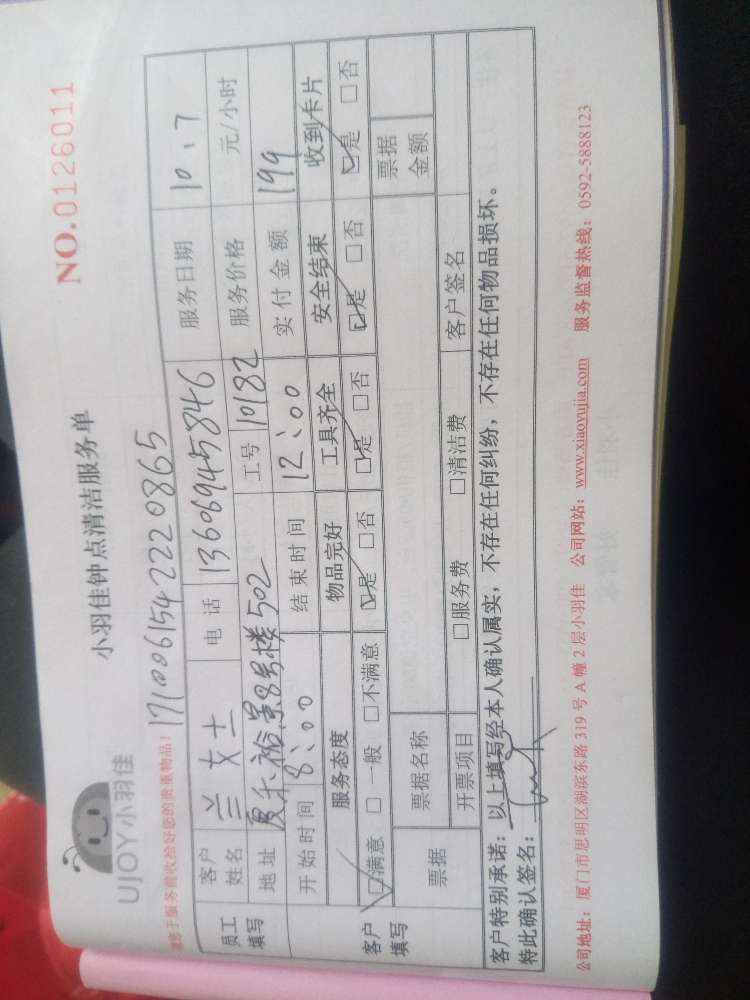 UJOY小羽佳
小羽佳钟点清洁服务单
NO.0126011
请您于服务前收拾好您的贵重物品!
17100615422220865
员工填写 客户姓名 兰女士 电话 13606945846 服务日期 10.7
地址 夏禾裕景8号楼502 工号 10182 服务价格 元/小时
开始时间 8:00 结束时间 12:00 实付金额 199
客户填写 服务态度 物品完好 工具齐全 安全结束 收到卡片
☑满意 □一般 □不满意 ☑是 □否 ☑是 □否 ☑是 □否 ☑是 □否
票据 票据名称 票据金额
开票项目 □服务费 □清洁费 客户签名
客户特别承诺:以上填写经本人确认属实,不存在任何纠纷,不存在任何物品损坏。
特此确认签名:
公司地址:厦门市思明区湖滨东路319号A幢2层小羽佳 公司网站:www.xiaoyujia.com 服务监督热线:0592-5888123